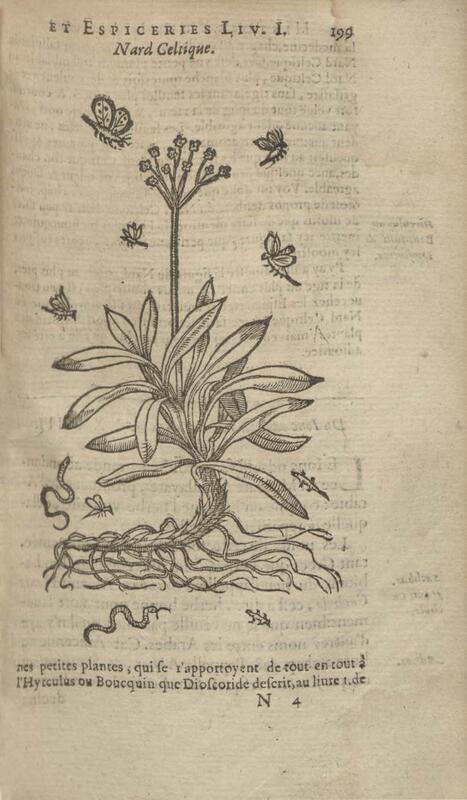 ET ESPICERIES LIV. I. 199
Nard Celtique.
nes petites plantes, qui se r'apportoyent de tout en tout à
l'Hyrculus ou Boucquin que Dioscoride descrit, au liure 1. de
N 4